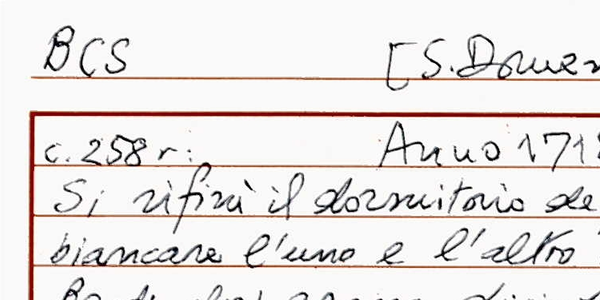 BCS [S. Domen
c. 258 r: Anno 171
Si rifinì il dormitorio de
biancare l'uno e l'altro